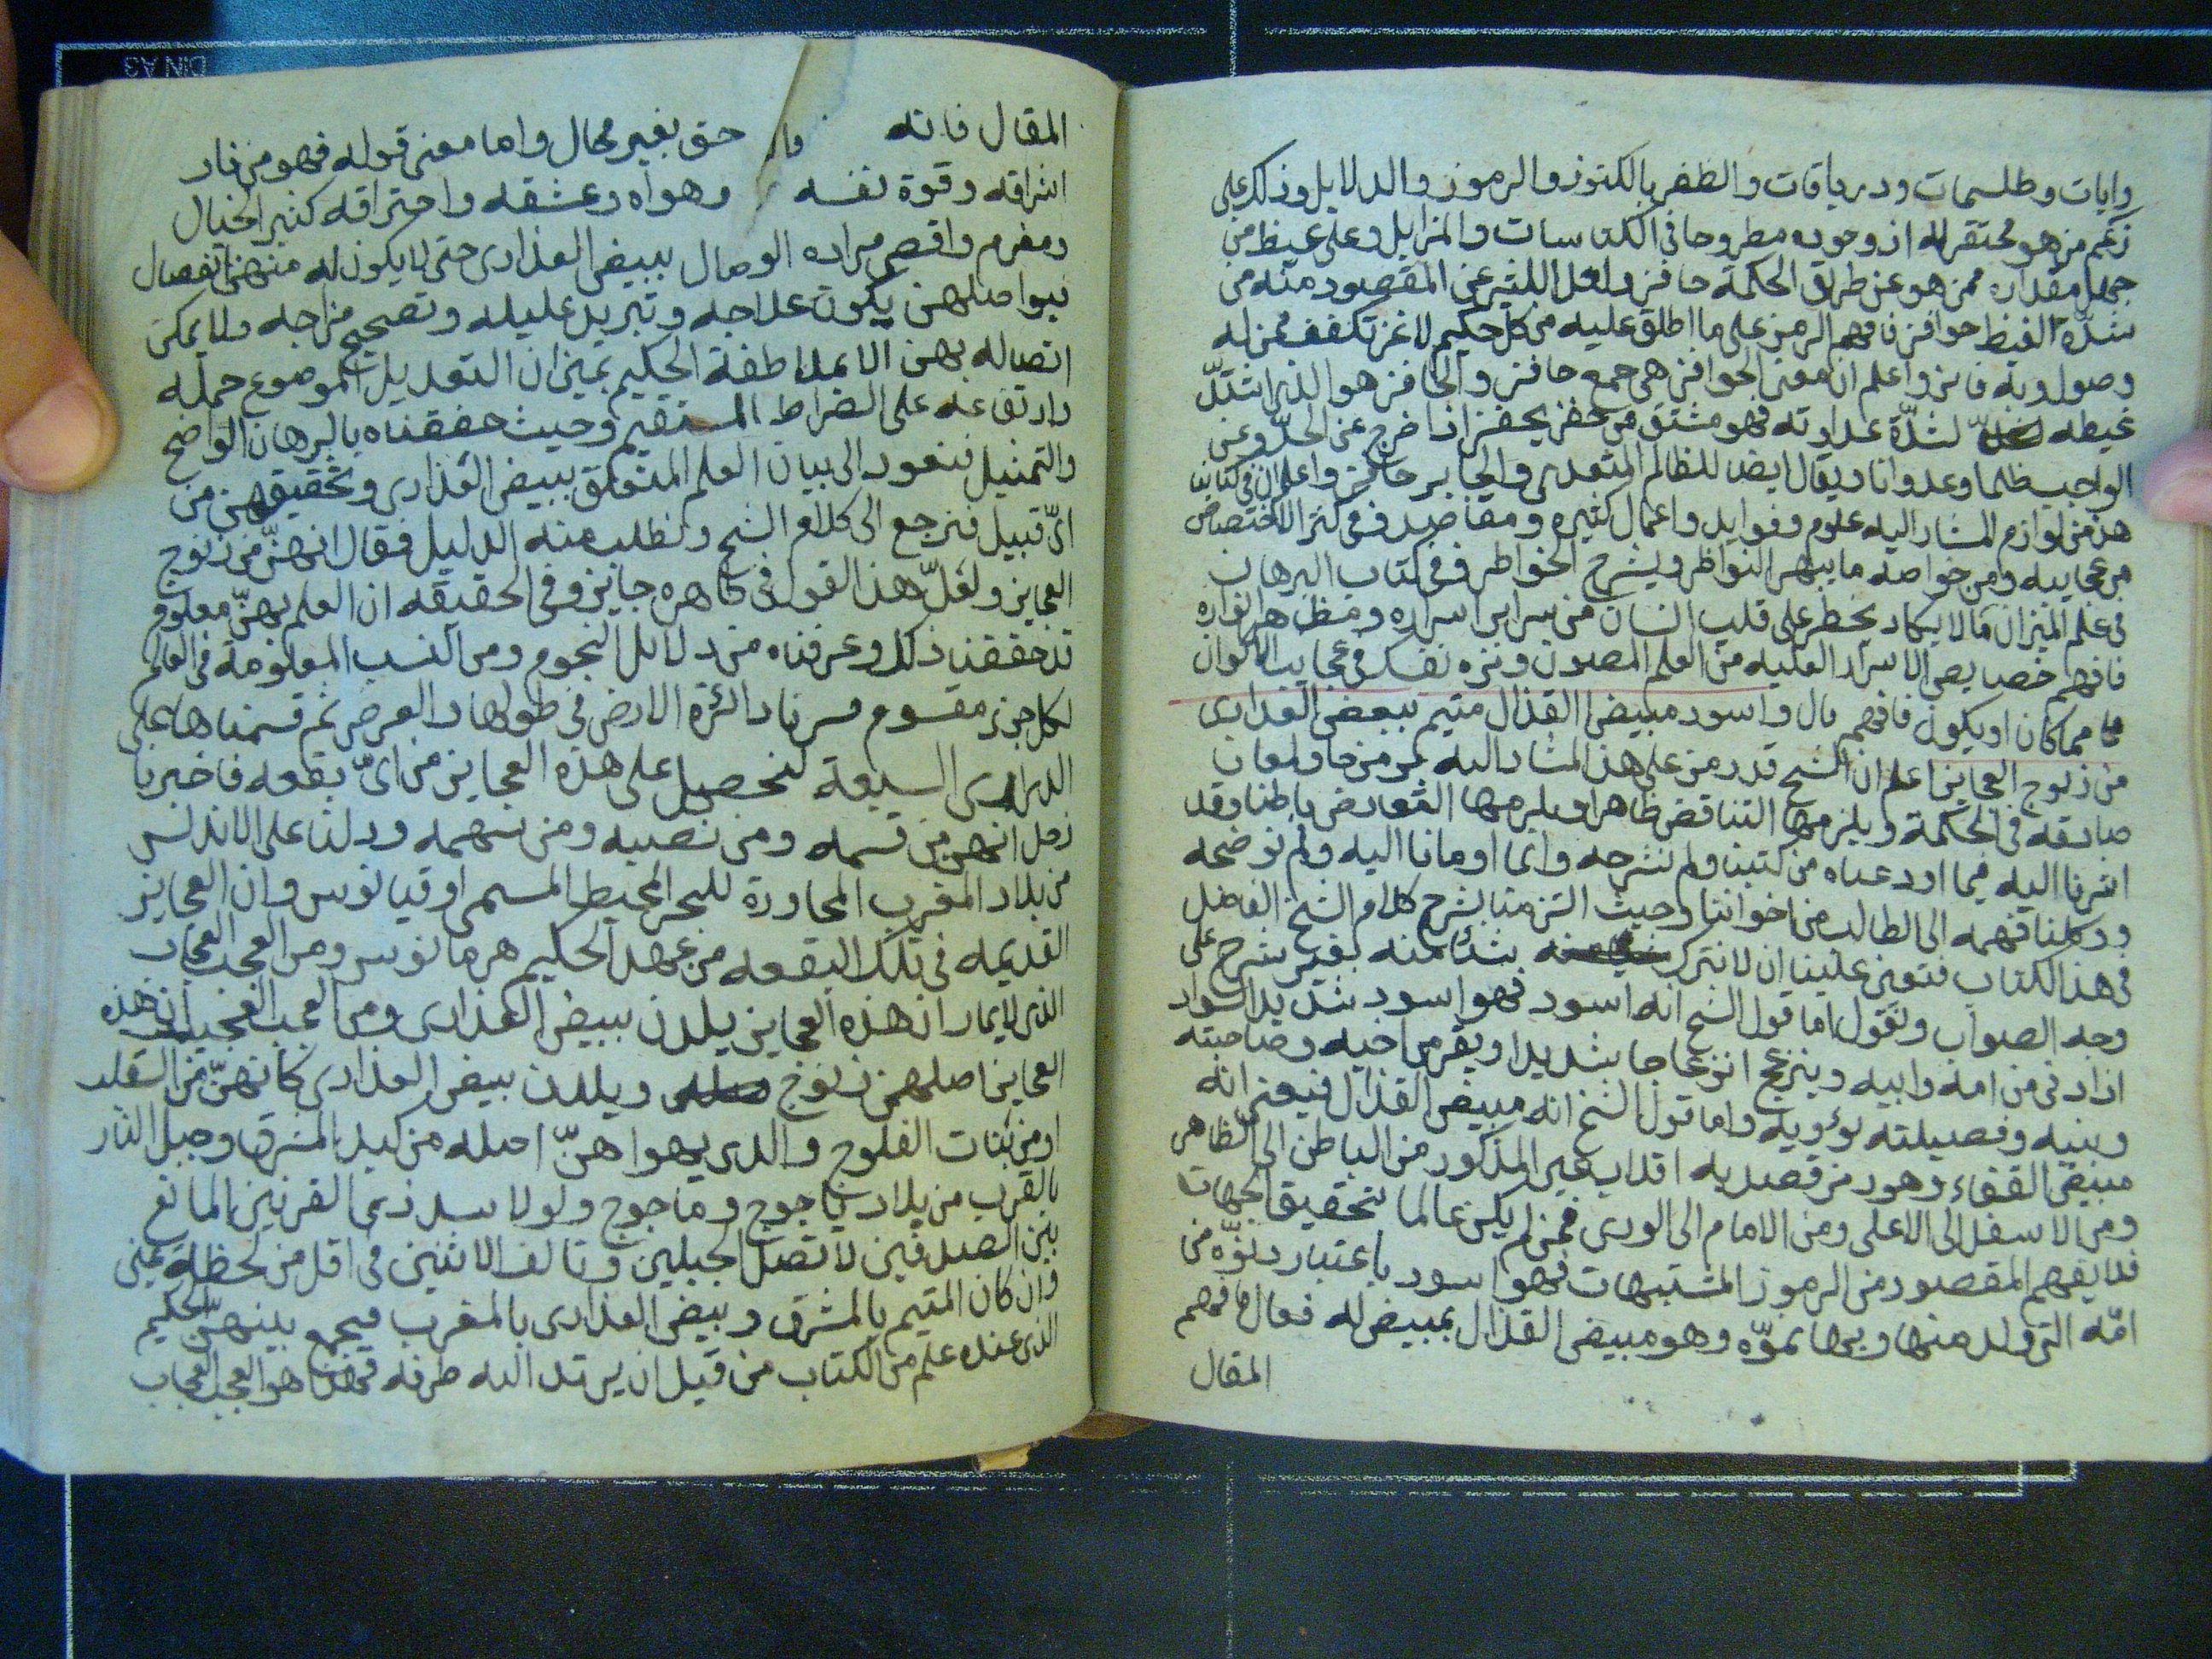 وايات وطلسمات ودرياقات والظفر بالكنوز والرموز والدلايل وذلك على
زعم من هو محتقر له اذ وجوده مطروحا فى الكناسات والمزابل وعلى غيظ من
جهل مقداره ممن هو عن طريق الحكمة حافز ولعل اللين عن المقصود منه من
شدّة الغيظ حوافز فافهم الرمز على ما اطلق عليه من كل حكيم لاغز تكفف ممن له
وصول وبه فايز واعلم ان معنى الحوافز هى جمع حافز والحافز هو الذى اشتدّ
غيظه لشدّة عداوته فهو مشتق من حفز يحفز اذا خرج عن الحدّ وعن
الواجب ظلما وعدوانا ويقال ايضا للظالم المتعدى والجاير حافز واعلم ان فى كتابنا
هذا من لوازم المشار اليه علوم وفوايد واعمال كثيره ومقاصد وفى كنز الاختصاص
من عجايبه ومن خواصه ما يبهر النواظر ويشرح الخواطر وفى كتاب البرهان
فى علم الميزان ما لا يكاد يخطر على قلب انسان من سراير اسراره ومظاهر انواره
فافهم خصايص الاسرار العليه من العلم المصون ونزه نفسك فى عجايب الاكوان
مما كان او يكون فافهم قال واسود مبيض القذال متيم ببعض العذارى
من زنوج العجايز اعلم ان الشيخ قد رمز على هذا المشار اليه برموز ومعان
صادقه فى الحكمة ويلزمها التناقض ظاهرا ويلزمها التعارض باطنا وقد
اشرنا اليه فيما اودعناه من كتبنا ولم نشرحه وانما اومانا اليه ولم نوضحه
ووكلنا فهمه الى الطالب من اخواننا وحيث التزمنا بشرح كلام الشيخ الفاضل
فى هذا الكتاب فتعين علينا ان لا نترك شيئا منه بغير شرح على
وجه الصواب ونقول اما قول الشيخ انه اسود فهو اسود شديد السواد
اذا دنى من امه وابيه وينزعج انزعاجا شديدا ويفر من اخيه وصاحبته
وبنيه وفصيلته تؤويه واما قول الشيخ انه مبيض القذال فيعنى انه
مبيض القفاء وهو رمز قصد به اقلاب غير المذكور من الباطن الى الظاهر
ومن الاسفل الى الاعلى ومن الامام الى الورى فمن لم يكن عالما بتحقيق الجهات
فلا يفهم المقصود من الرموز المشتبهات فهو اسود باعتبار دنوّه من
امّه التى ولد منها وبها نموّه وهو مبيض القذال بمبيض له فعال فافهم
المقال
المقال فانه حق بغير محال واما معنى قوله فهو من نار
اشراقه وقوة نفسه وهواه وعشقه واحتراقه كثير الخبال
ومغرم واقصى مراده الوصال ببيض العذارى حتى لا يكون له منهن انفصال
فبوصلهن يكون علاجه وتبريد غليله وتصحيح مزاجه ولا يمكن
اتصاله بهن الا بملاطفة الحكيم بميزان التعديل الموضوع حمله
وارتفاعه على الصراط المستقيم وحيث حققناه بالبرهان الواضح
والتمثيل فنعود الى بيان العلم المتعلق ببيض العذارى وتحقيقهن من
اىّ قبيل فنرجع الى كلام الشيخ ونطلب منه الدليل فقال انهنّ من زنوج
العجايز ولعلّ هذا القول فى ظاهره جايز وفى الحقيقه ان العلم بهنّ معلوم
قد حققنا ذلك وعرفناه من دلائل النجوم ومن النسب المعلومة فى العالم
لكل جزؤ مقسوم فسرنا دائرة الارض فى طولها والعرض ثم قسمناها على
الدرارى السبعة لنحصل على هذه العجايز من اىّ بقعه فاخبرنا
زحل انهن من قسمه ومن نصيبه ومن سهمه ودلنا على الاندلس
من بلاد المغرب المجاورة للبحر المحيط المسمى اوقيانوس وان العجايز
القديمه فى تلك البقعه من عهد الحكيم هرمانوس ومن العجب العجاب
الذى لا يمار ان هذه العجايز يلدن ببيض العذارى ومن العجب العجيب ان هذه
العجايز اصلهن زنوج ويلدن بيض العذارى كانهنّ من السقلب
او من بنات الفلوج والذى يهواهنّ اصله من كبد المشرق وجبل النار
بالقرب من بلاد ياجوج وماجوج ولولا سد ذى القرنين المانع
بين الصدفين لاتصل الجبلين وتالف الاثنين فى اقل من لحظة عين
وان كان المتيم بالمشرق وبيض العذارى بالمغرب فيجمع بينهنّ الحكيم
الذى عنده علم من الكتاب من قبل ان يرتد اليه طرفه فهذا هو العجب العجاب